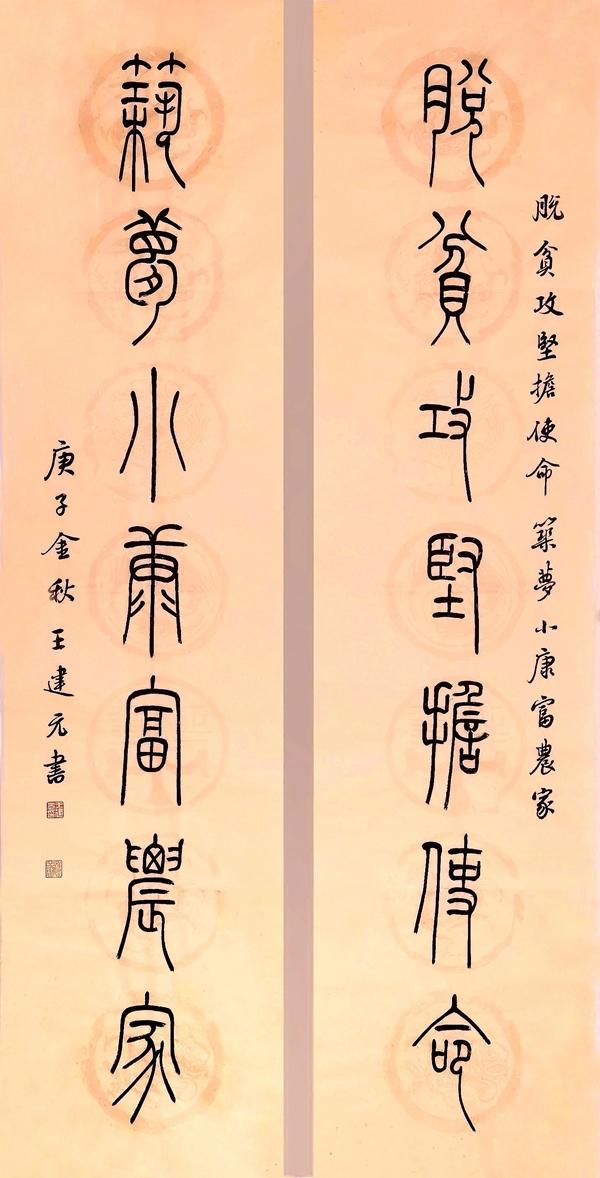 脫貧攻堅擔使命 築夢小康富農家
脫貧攻堅擔使命
築夢小康富農家
庚子金秋 王建元書